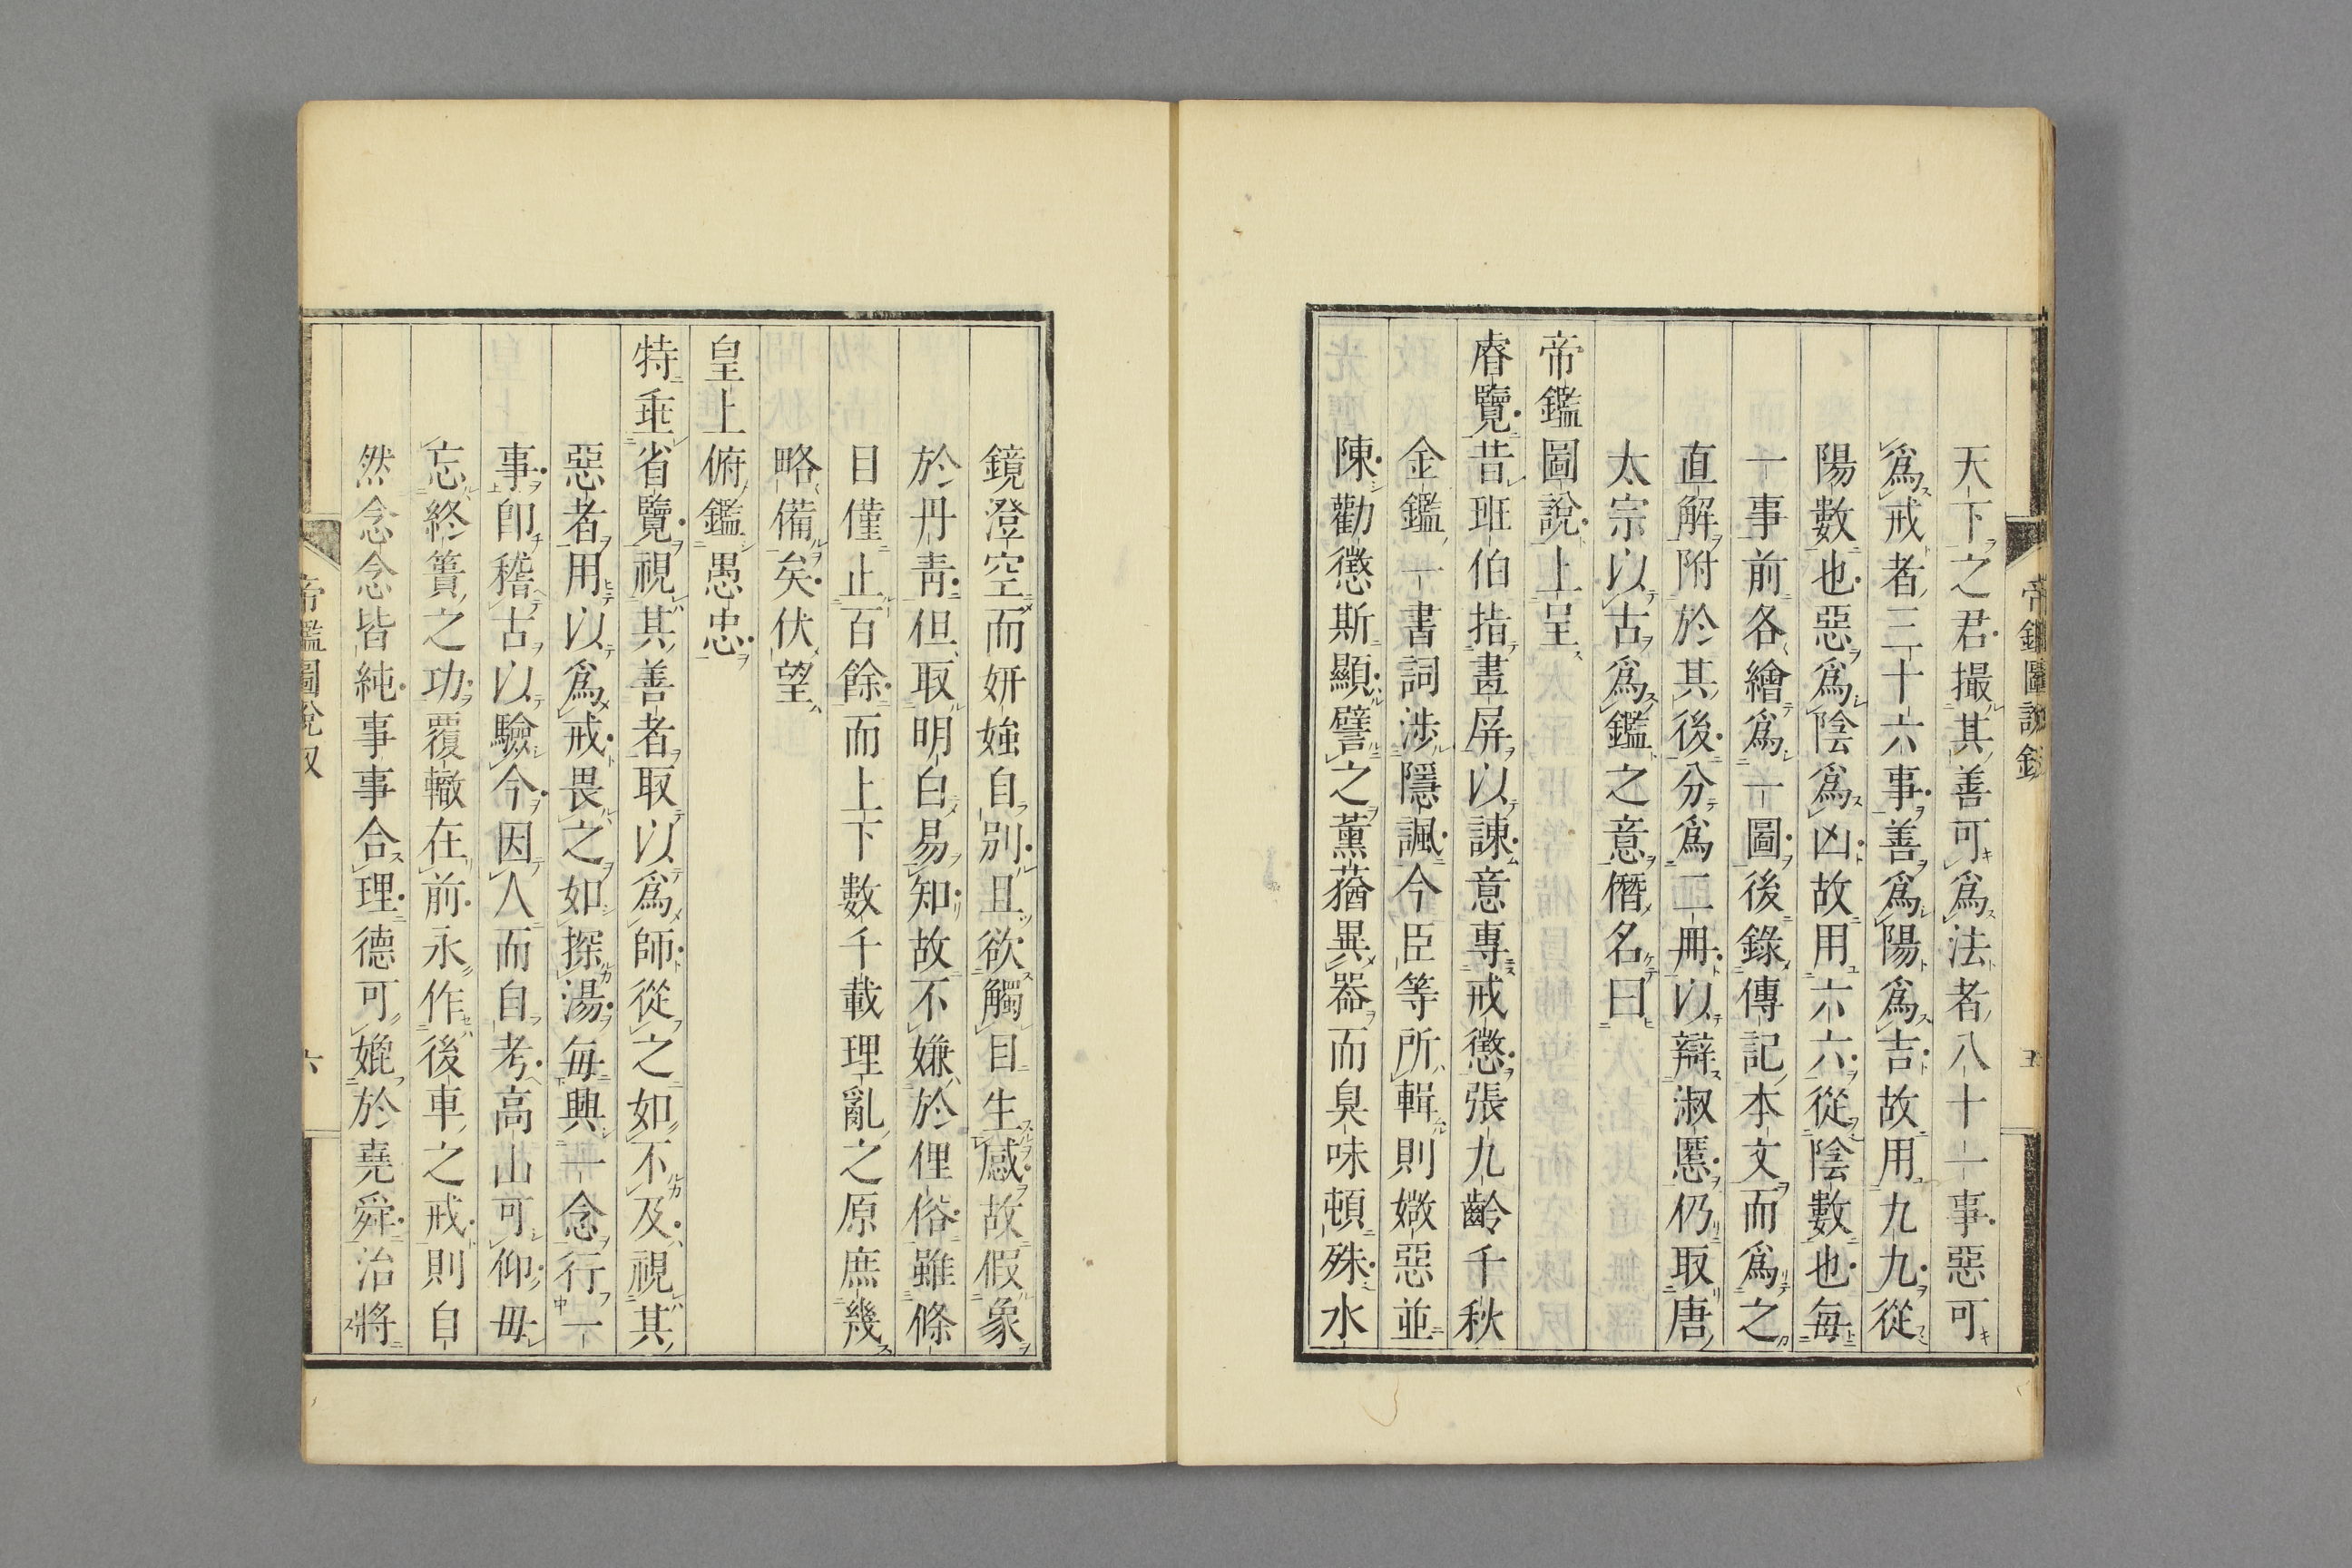 天下之君撮其善可爲法者八十一事惡可
爲戒者三十六事善爲陽爲吉故用九九從
陽數也惡爲陰爲凶故用六六從陰數也每
一事前各繪爲一圖後錄傳記本文而爲之
直解附於其後分爲二冊以辯淑慝仍取唐
太宗以古爲鑑之意僭名曰
帝鑑圖說上呈
睿覽昔班伯指畫屏以諫意專戒懲張九齡千秋
金鑑一書詞涉隱諷今臣等所輯則媺惡並
陳勸懲斯顯譬之薰蕕異器而臭味頓殊水
鏡澄空而妍媸自別且欲觸目生感故假象
於丹青但取明白易知故不嫌於俚俗雖條
目僅止百餘而上下數千載理亂之原庶幾
略備矣伏望
皇上俯鑑愚忠
特垂省覽視其善者取以爲師從之如不及視其
惡者用以爲戒畏之如探湯每興一念行一
事卽稽古以驗今因人而自考高山可仰毋
忘終簣之功覆轍在前永作後車之戒則自
然念念皆純事事合理德可媲於堯舜治將
帝鑑圖說叙
六